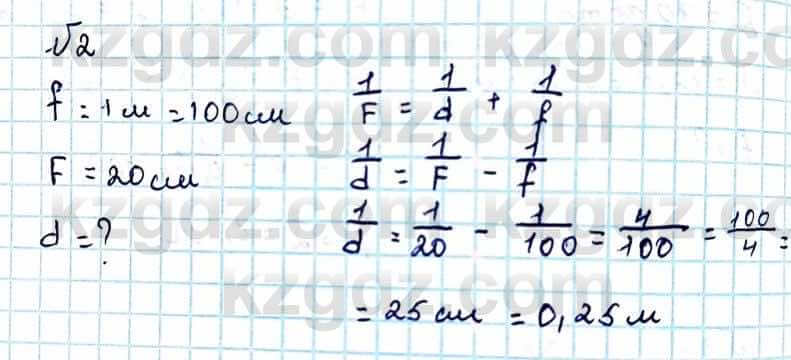 √2
f = 1 м = 100 см
F = 20 см
d = ?
1/F = 1/d + 1/f
1/d = 1/F - 1/f
1/d = 1/20 - 1/100 = 4/100 = 100/4 =
= 25 см = 0,25 м
kzgdz.com kzgdz.com
kzgdz.com
kzgdz.com kzgdz.com
kzgdz.com